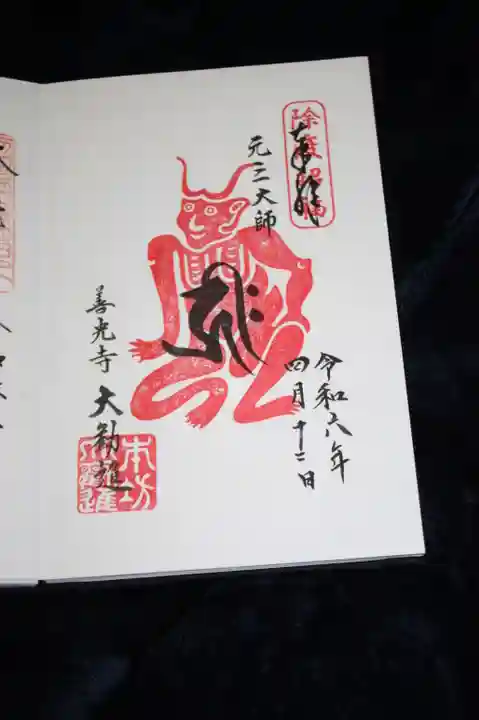 奉拝
元三大師
令和六年
四月十二日
善光寺 大勧進
本坊
大勧進